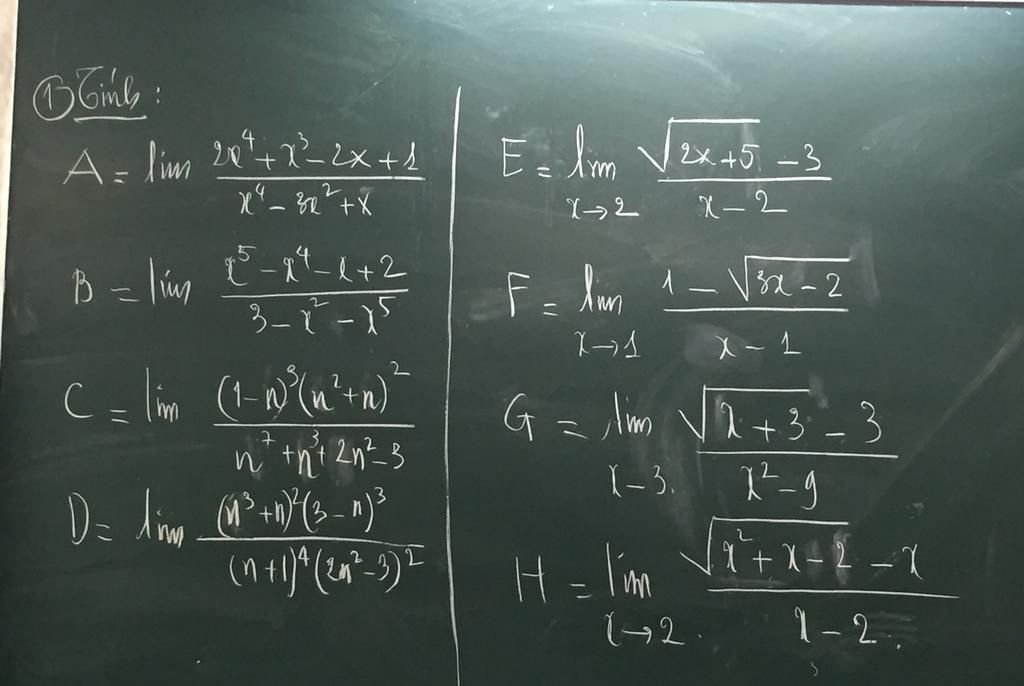 ① Tính:
A = lim (2x⁴ + x³ - 2x + 1)/(x⁴ - 3x² + x)
B = lim (x⁵ - x⁴ - x + 2)/(3 - x² - x⁵)
C = lim ((1-n)³(n²+n)²)/(n⁷ + n³ + 2n² - 3)
D = lim ((n³+n)²(3-n)³)/((n+1)⁴(2n²-3)²)
E = lim x→2 (√(2x+5) - 3)/(x - 2)
F = lim x→1 (1 - √(3x-2))/(x - 1)
G = lim x-3. (√(x+3) - 3)/(x² - 9)
H = lim x→2. (√(x²+x-2) - x)/(x - 2.)